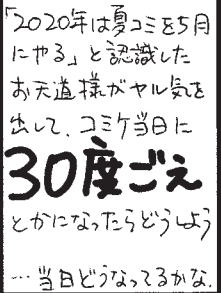 「2020年は夏コミを5月
にやる」と認識した
お天道様がヤル気を
出して、コミケ当日に
30度ごえ
とかになったらどうしよう
…当日どうなってるかな.